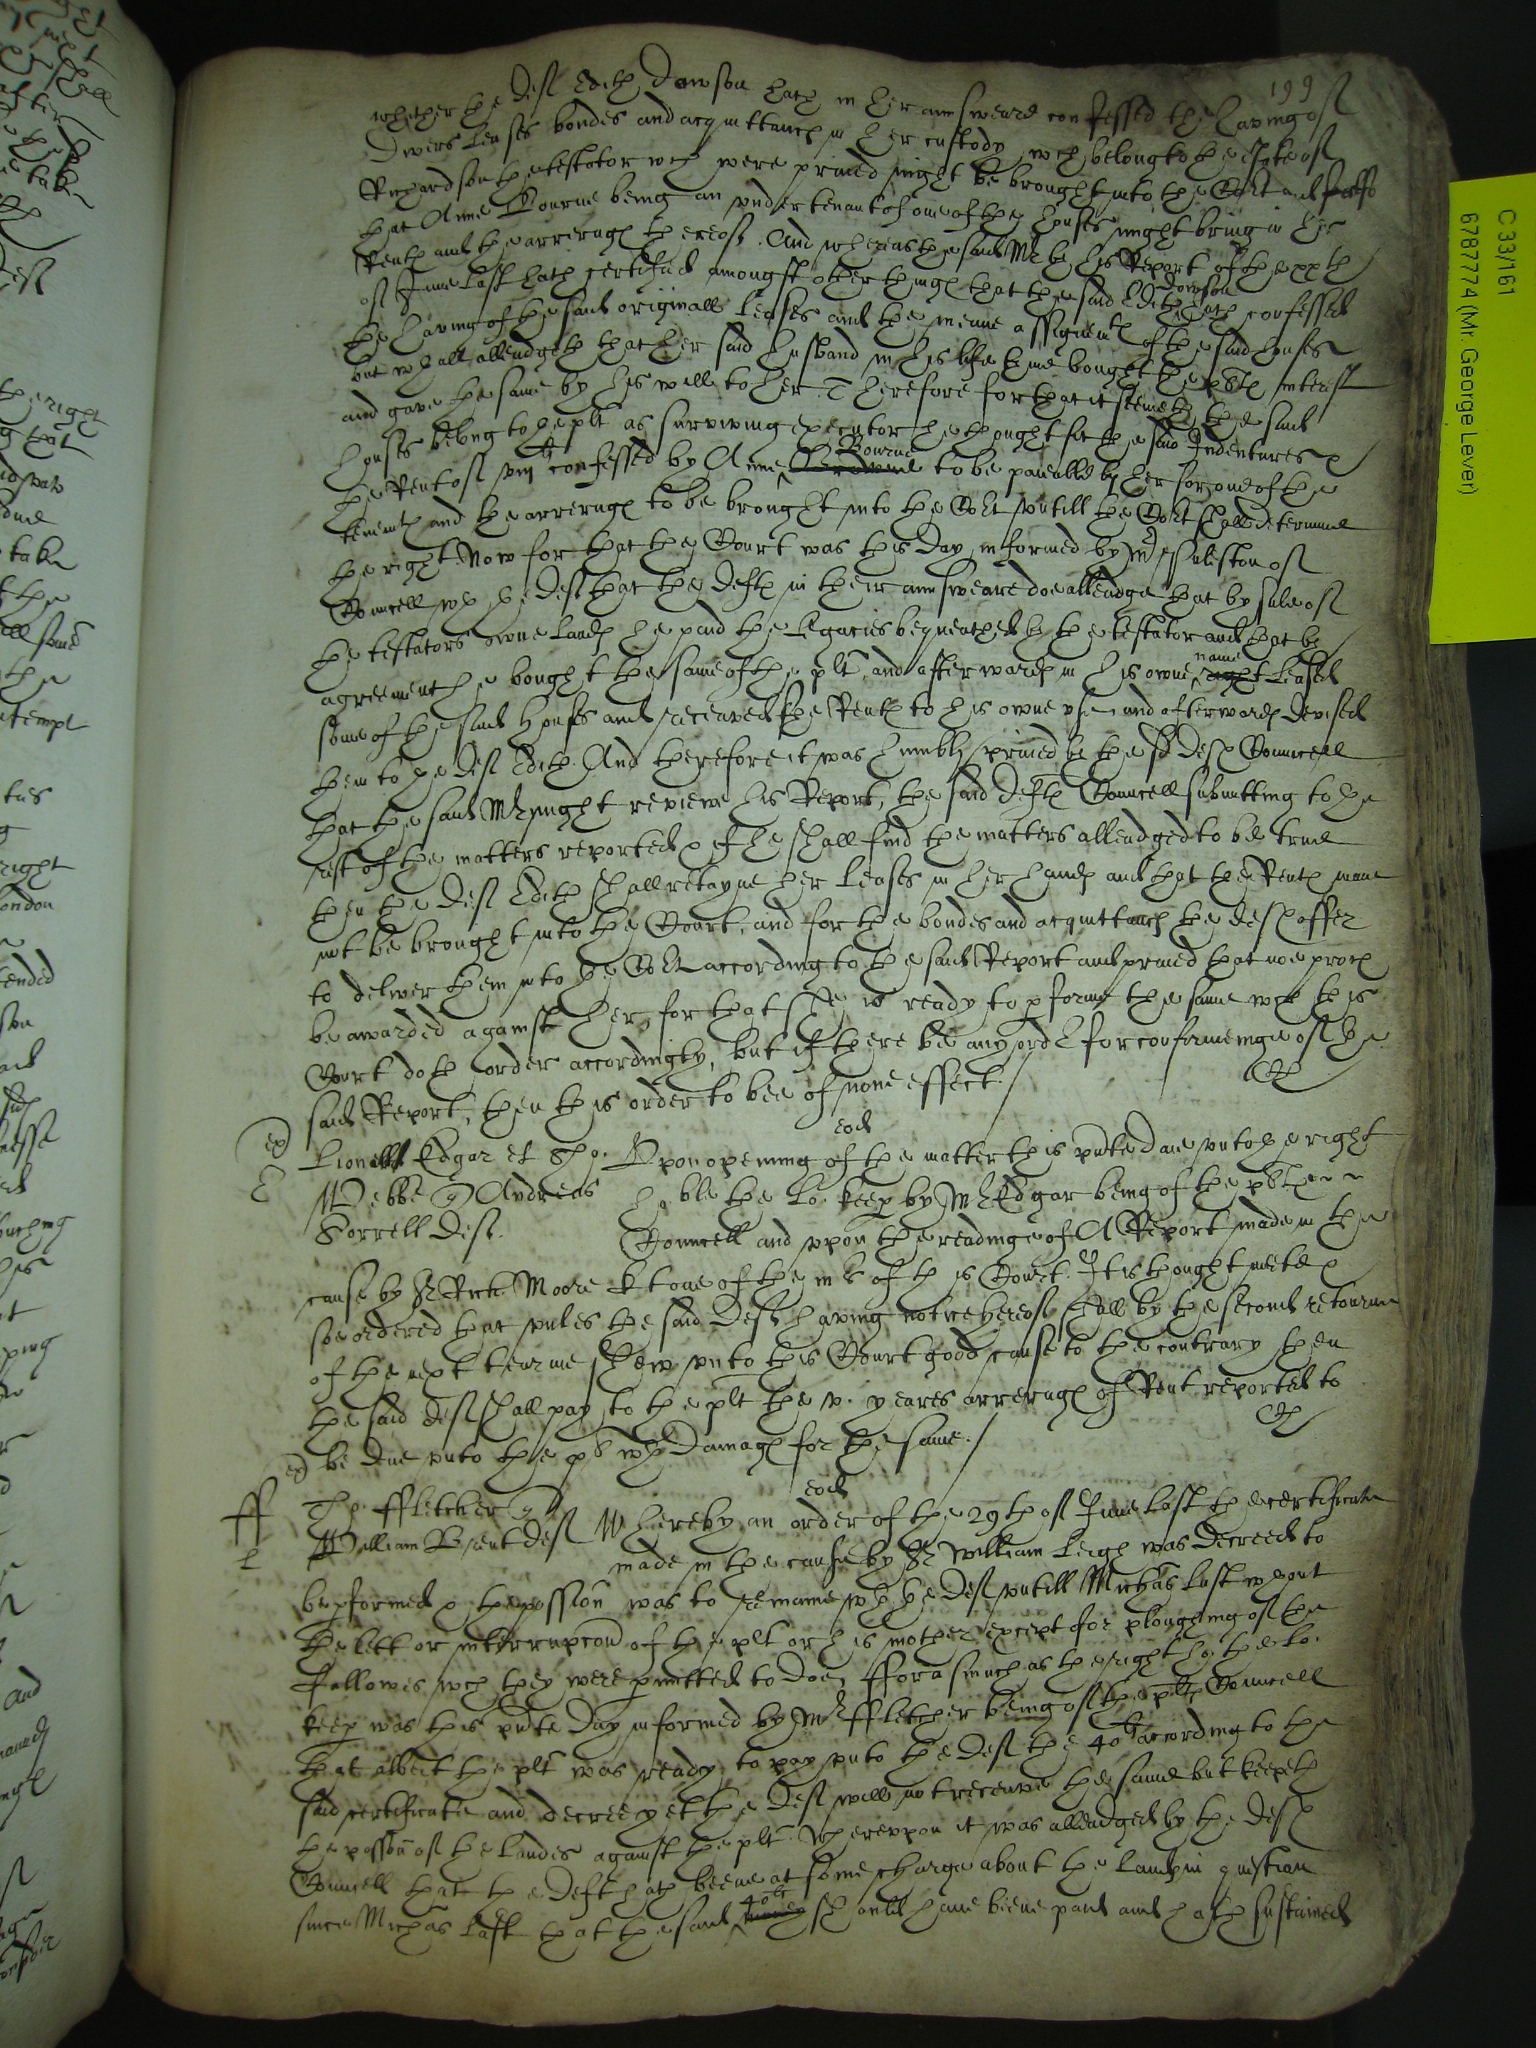 199
whether the deft Edith Dawson hath in her answeare confessed the having of
divers leases bondes and acquittances in her custody wch belong to the estate of
Richardson the testator wch were praied might be brought into the Cort and
that Anne Bourne being an undertenant of one of the houses might bring in her
Rents and the arrerages thereof. And whereas the said Mr by his Report of the xxth
of June last hath certified amongst other things that the said Edith Dawson hath confessed
the having of the said originall leases and the meane assignemts of the said houses
but wthall alleadgeth that her said husband in his life time bought the plts interest
and gave the same by his will to her. Therefore for that it seemeth the said
houses belong to the plt as surviving executor he thought fit the said Indentures &
the Rent of viijli confessed by Anne Bourne to be payable by her for one of the
tenemts and the arrerages to be brought into the Cort untill the Cort shall determine
the right. Now for that the Court was this day informed by Mr Puleston of
Councell wth the deft that the defts in their answeare doe alleadge that by sale of
the testators owne lands he paid the legacies bequeathed by the testator and that by
agreement he bought the same of the plt, and afterwards in his owne name right leased
some of the said houses and received the Rents to his owne use, and afterwards devised
them to the deft Edith. And therefore it was humbly praied by the sd defts Councell
that the said Mr might review his Report, the said defts Councell submitting to the
rest of the matters reported & if he shall find the matters alleadged to be true
then the deft Edith shall retayne her leases in her hands and that the Rents maie
not be brought into the Court, and for the bondes and acquittances the deft offer
to deliver them into the Cort according to the said Report and praied that noe proces
be awarded against her, for that she is ready to pforme the same wch this
Court doth order accordingly, but if there be any order for confermeinge of the
said Report, then this order to bee of none effect.
eod
Lionell Edgar et Tho: Webbe Andreas Sorrell deft.
Upon opening of the matter this pnte daie unto the right
ho: ble the Lo: keep by Mr Edgar being of the plts
Councell and uppon the readinge of A Report made in the
cause by Sr Rich: Moore kt one of the mrs of this Court. It is thought meete &
soe ordered that unles the said deft having notice hereof shall by the second retourne
of the next tearme shew unto this Court good cause to the contrary then
the said deft shall pay to the plt the v. yeares arrerages of Rent reported to
be due unto the pt wth damages for the same.
eod
Tho: ffletcher
William Brent deft
Whereby an order of the 29th of June last the certificate
made in the cause by Sr William Leigh was decreed to
be pformed & the possion was to remaine wth the deft untill Michas last wthout
the lett or interrupcon of the plt or his mother except for ploughing of the
fallowes wch they were pmitted to doe; fforasmuch as the right ho: the lo:
keep was this pnte day informed by Mr ffletcher being of the plts Councell
that albeit the plt was ready to pay unto the deft the 40li according to the
said certificate and decree yet the deft will not receive the same but keepeth
the possion of the landes against the plt. Whereuppon it was alleadged by the defts
Councell that the deft hath beene at some charge about the lands in question
since Michas last that the said 40li should have beene paid and hath sustained
C 33/161
6787774 (Mr. George Lever)